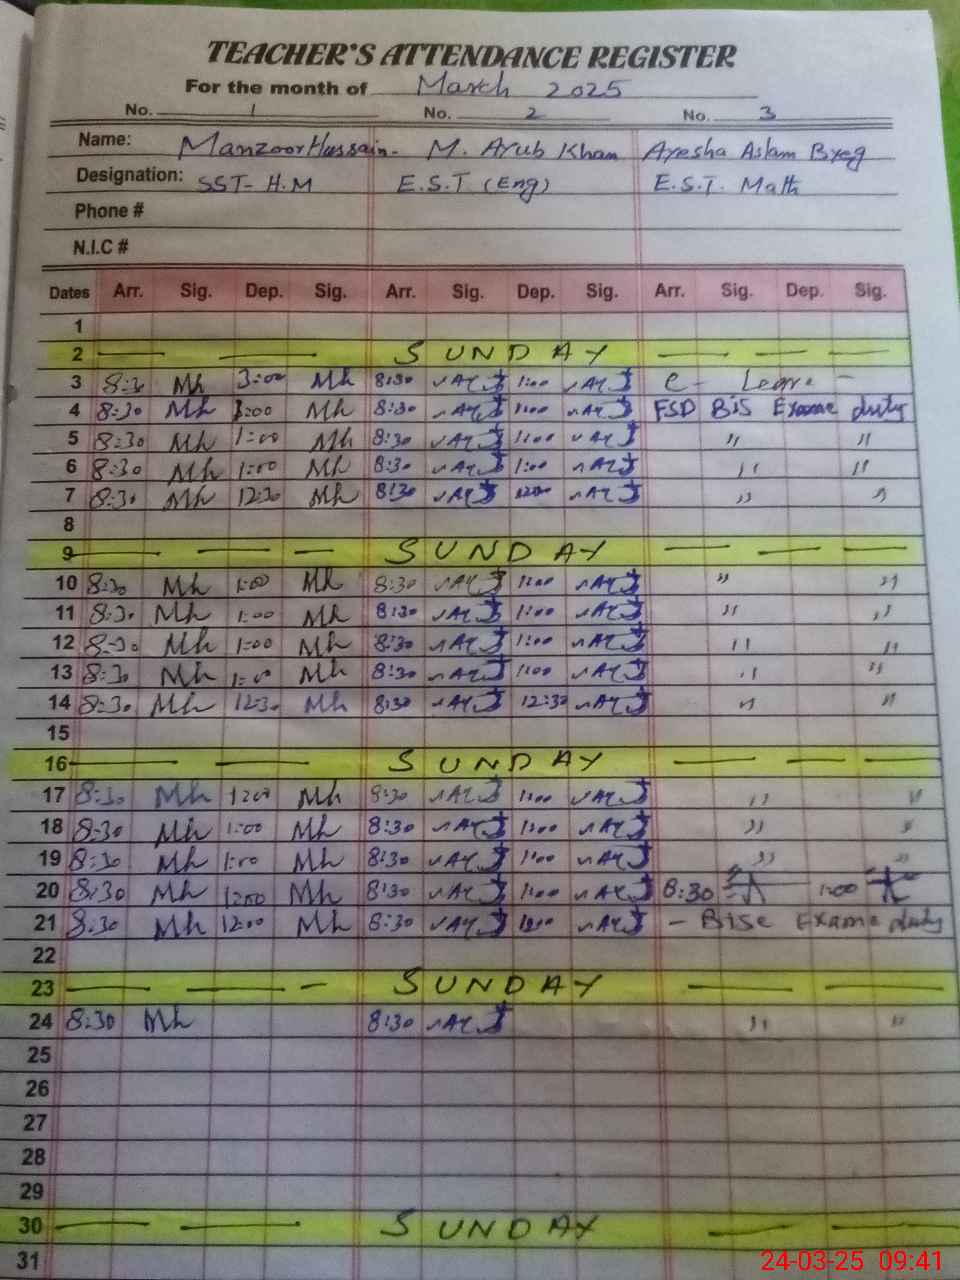 TEACHER'S ATTENDANCE REGISTER
For the month of March 2025
No. 1 No. 2 No. 3
Name: Manzoor Hussain- M. Ayub Khan Ayesha Aslam Byeg
Designation: SST-H.M E.S.T (Eng) E.S.T. Math
Phone #
N.I.C #
Dates Arr. Sig. Dep. Sig. Arr. Sig. Dep. Sig. Arr. Sig. Dep. Sig.
1
2 SUNDAY
3 8:30 Mh 3:00 Mh 8:30 1:00 C- Leave -
4 8:30 Mh 1:00 Mh 8:30 1:00 FSD BIS Exame duty
5 8:30 Mh 1:00 Mh 8:30 1:00 " "
6 8:30 Mh 1:00 Mh 8:30 1:00 " "
7 8:30 Mh 12:30 Mh 8:30 " "
8
9 SUNDAY
10 8:30 Mh 1:00 Mh 8:30 1:00 " "
11 8:30 Mh 1:00 Mh 8:30 1:00 " "
12 8:30 Mh 1:00 Mh 8:30 1:00 " "
13 8:30 Mh 1:00 Mh 8:30 1:00 " "
14 8:30 Mh 12:30 Mh 8:30 12:30 " "
15
16 SUNDAY
17 8:30 Mh Mh 8:30 1:00 " "
18 8:30 Mh 1:00 Mh 8:30 1:00 " "
19 8:30 Mh 1:00 Mh 8:30 1:00 " "
20 8:30 Mh Mh 8:30 1:00 8:30 1:00
21 8:30 Mh 12:00 Mh 8:30 - BISE Exame duty
22
23 SUNDAY
24 8:30 Mh 8:30 " "
25
26
27
28
29
30 SUNDAY
31
24-03-25 09:41